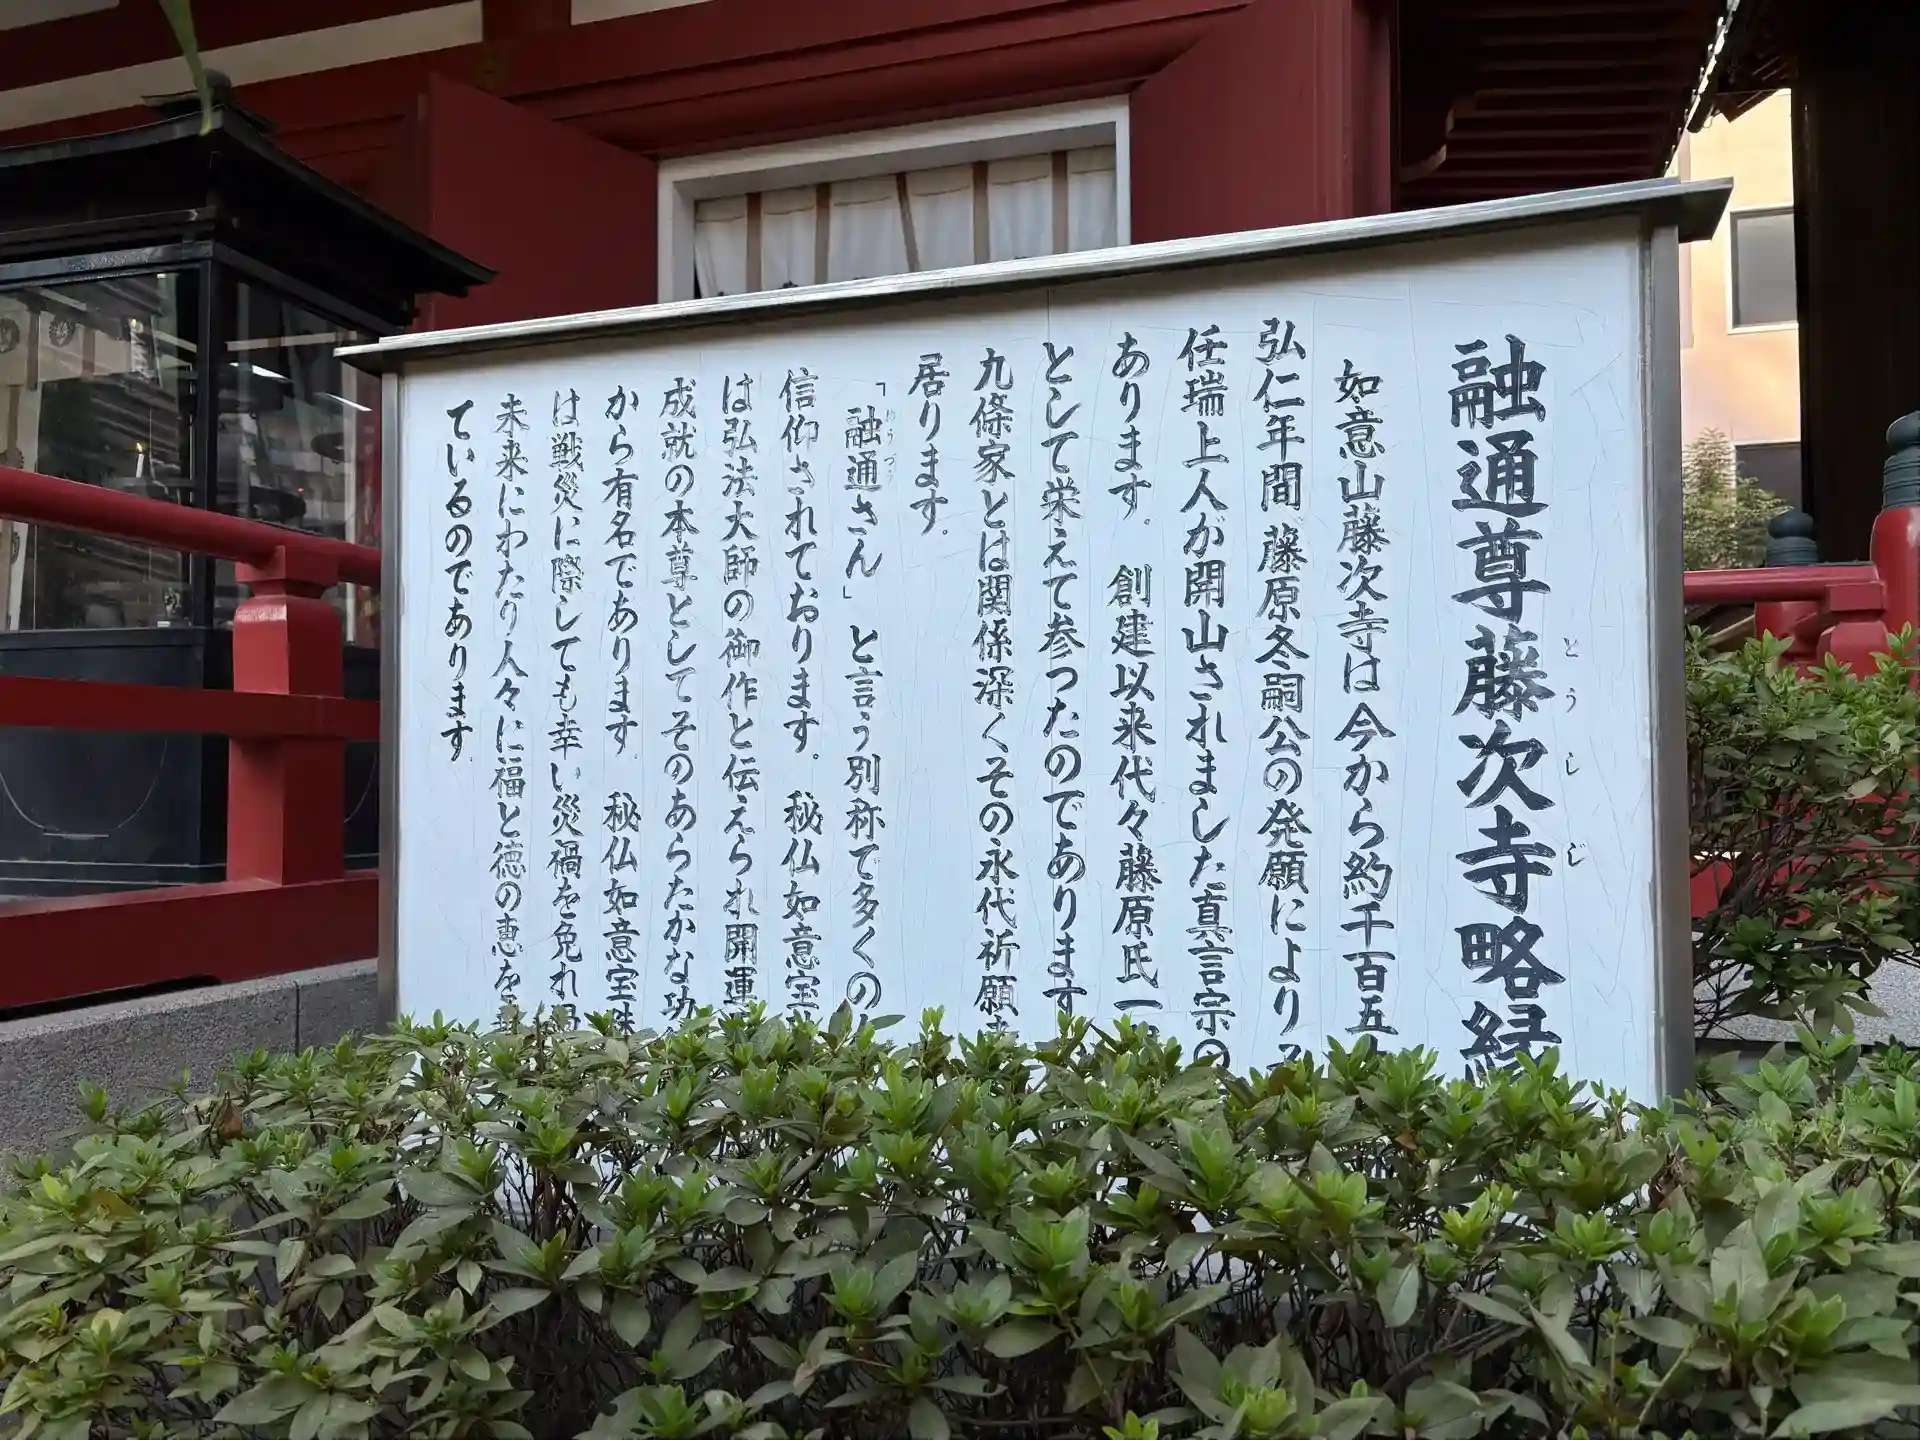 融通尊藤次寺略縁
とうしじ
如意山藤次寺は今から約千百五
弘仁年間 藤原冬嗣公の発願により
任瑞上人が開山されました真言宗の
あります。 創建以来代々藤原氏一
として栄えて参つたのであります
九條家とは関係深くその永代祈願
居ります。
「融通さん」と言う別称で多くの
ゆうづう
信仰されております。 秘仏如意宝
は弘法大師の御作と伝えられ開運
成就の本尊としてそのあらたかな功
から有名であります。 秘仏如意宝珠
は戦災に際しても幸い災禍を免れ
未来にわたり人々に福と徳の恵を
ているのであります。